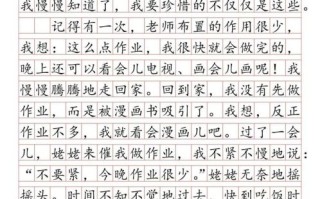 我慢慢知道了，我要珍惜的不仅仅是这些。
记得有一次，老师布置的作业很少，
我想：这么点作业，我很快就会做完的，
晚上还可以看会儿电视、画会儿画呢！我
慢慢腾腾地走回家。回到家，我没有先做
作业，而是被漫画书吸引了。我想，反正
作业不多，我就看会漫画儿吧。过了一会
儿，姥姥来催我做作业，我不紧不慢地说：
“不要紧，今晚作业很少。”姥姥无奈地摇
摇头。时间不知不觉地过去，快到吃饭时